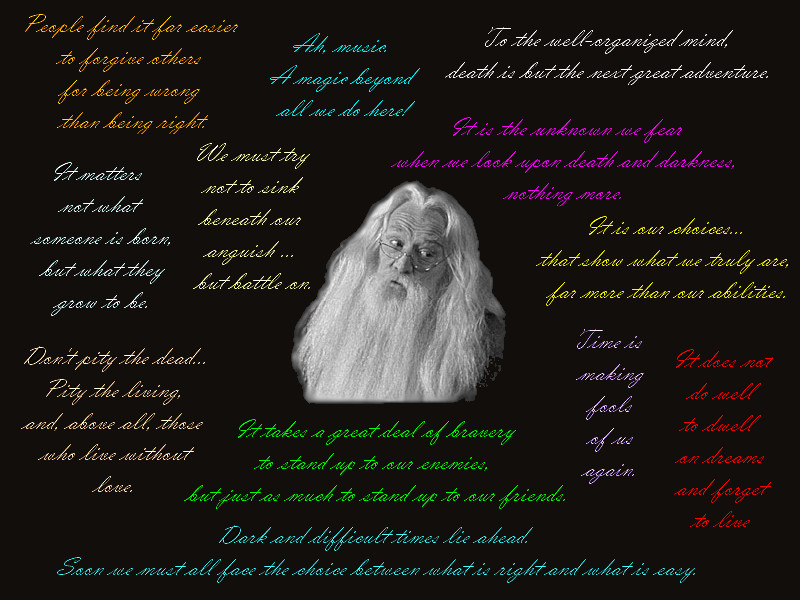 People find it far easier
to forgive others
for being wrong
than being right.
Ah, music.
A magic beyond
all we do here!
To the well-organized mind,
death is but the next great adventure.
It is the unknown we fear
when we look upon death and darkness,
nothing more.
We must try
not to sink
beneath our
anguish ...
but battle on.
It matters
not what
someone is born,
but what they
grow to be.
It is our choices...
that show what we truly are,
far more than our abilities.
Don't pity the dead...
Pity the living,
and, above all, those
who live without
love.
Time is
making
fools
of us
again.
It does not
do well
to dwell
on dreams
and forget
to live
It takes a great deal of bravery
to stand up to our enemies,
but just as much to stand up to our friends.
Dark and difficult times lie ahead.
Soon we must all face the choice between what is right and what is easy.